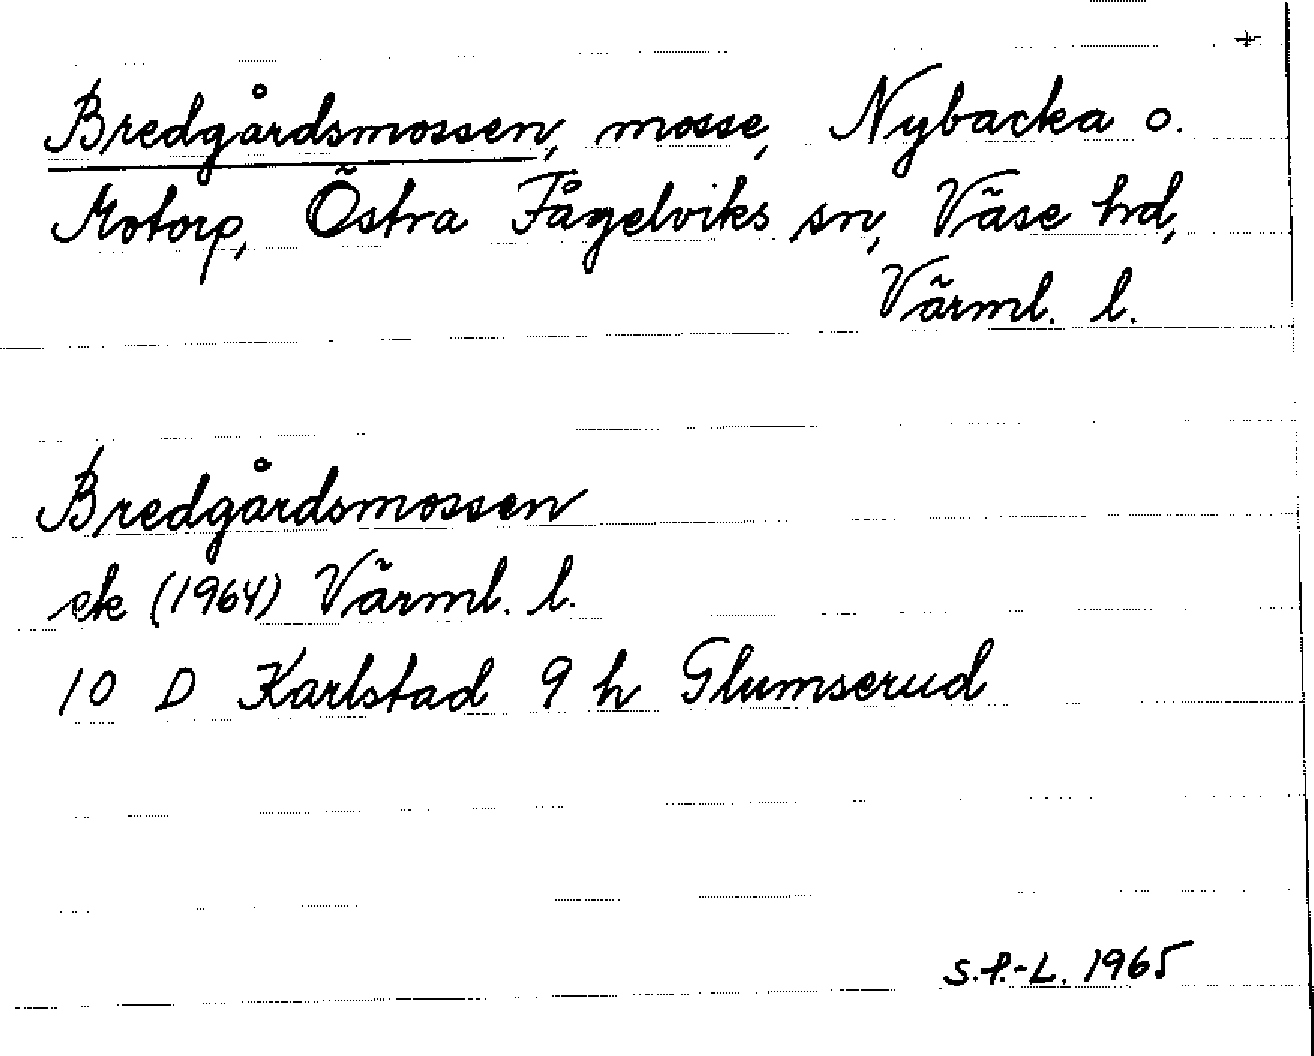 +
Bredgårdsmossen, mosse, Nybacka o.
Motorp, Östra Fågelviks sn, Väse hd,
Värml. l.
Bredgårdsmossen
ek (1964) Värml. l.
10 D Karlstad 9 h Glumserud
S.P.-L. 1965